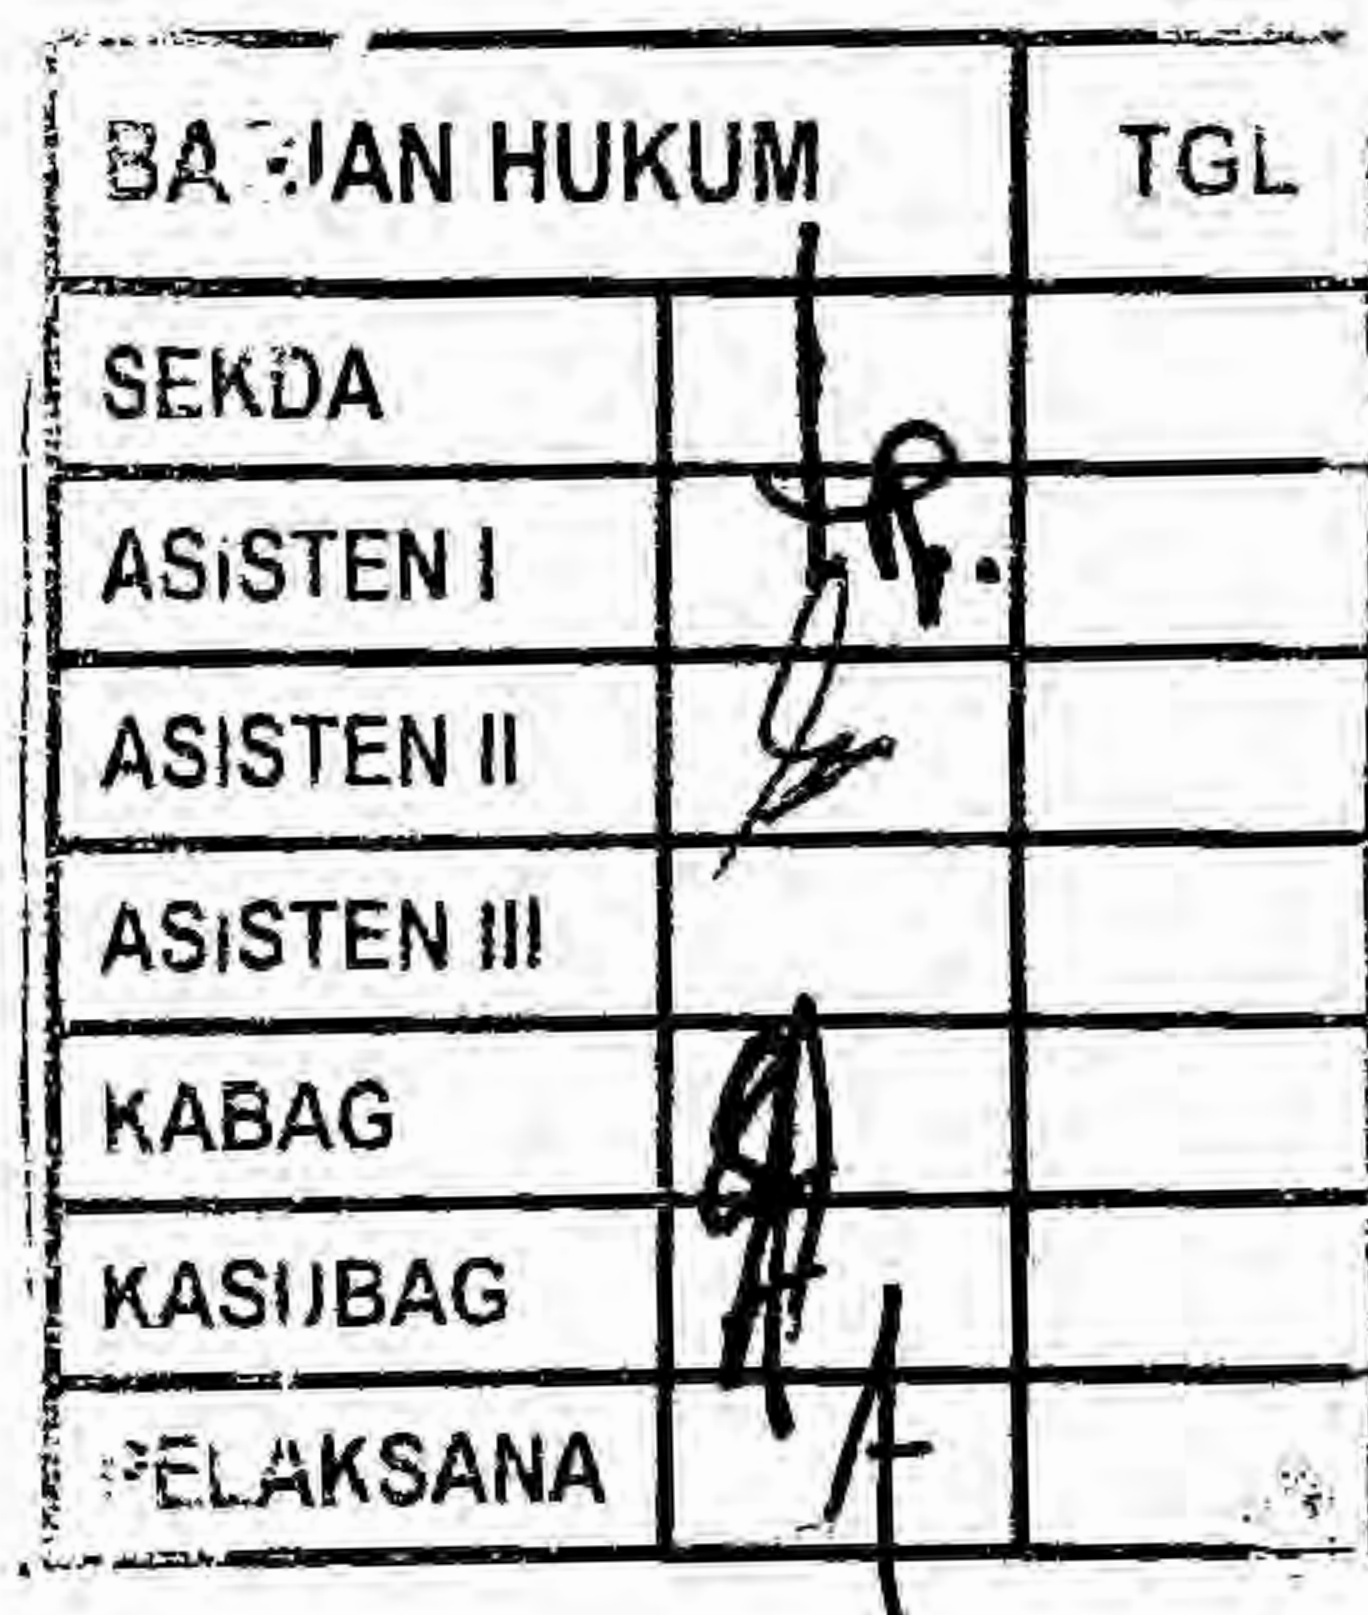 BAGIAN HUKUM TGL
SEKDA
ASISTEN I
ASISTEN II
ASISTEN III
KABAG
KASUBAG
PELAKSANA